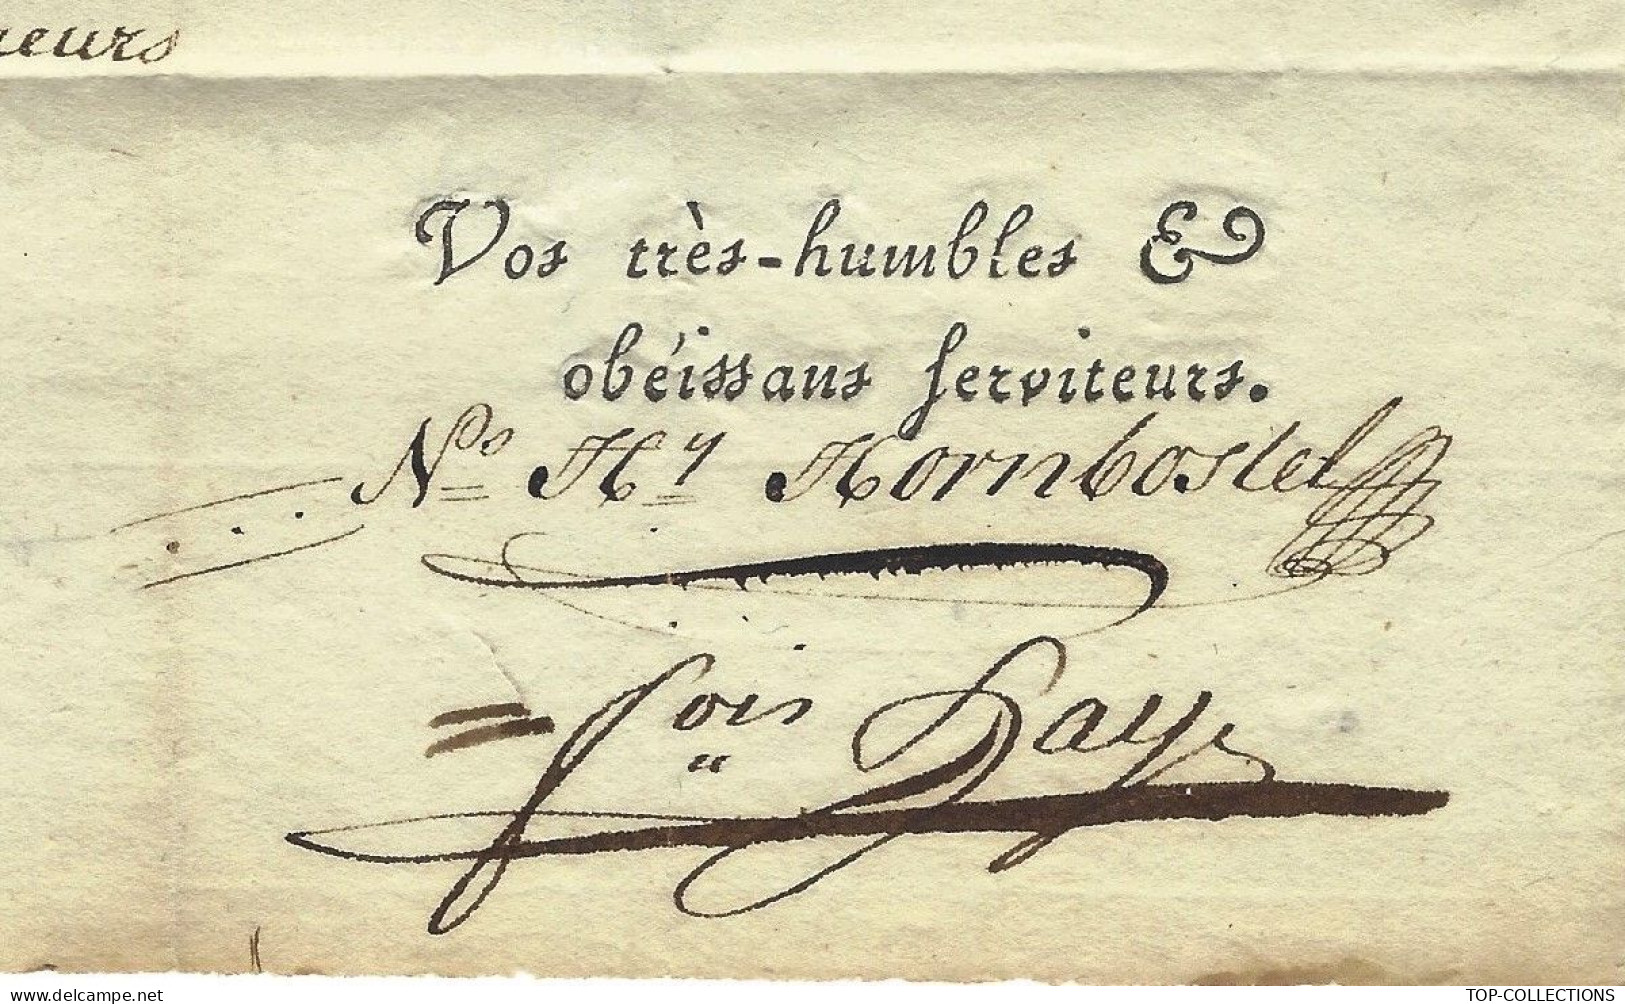 Vos très-humbles &
obéissans serviteurs.
Ns Hy Hornbostel
fois Daye
delcampe.net
TOP-COLLECTIONS